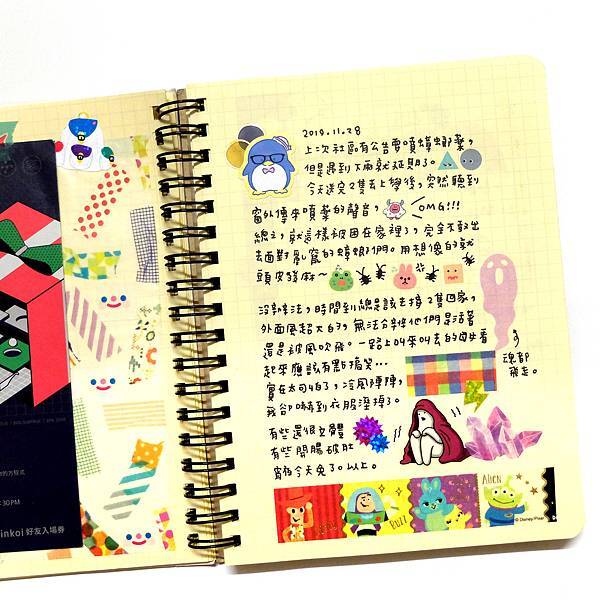 2019.11.28
上次社區有公告要噴蟑螂藥，
但是遇到下雨就延期了。
今天送完2隻去上學後，突然聽到
窗外傳來噴藥的聲音， OMG!!!
總之，就這樣被困在家裡了，完全不敢出
去面對亂竄的蟑螂們。用想像的就
頭皮發麻~
沒辦法，時間到總是該去接2隻回家，
外面風超大的，無法分辨他們是活著
還是被風吹飛。一路上叫來叫去的母女看
起來應該有點搞笑...
實在太可怕了，冷風陣陣，
我卻嚇到衣服溼掉了。
魂都
飛走。
有些還很立體
有些開腸破肚
今天免了。以上。
WOODY
BUZZ
ALIEN
© Disney/Pixar
:30PM
inkoi 好友入場券